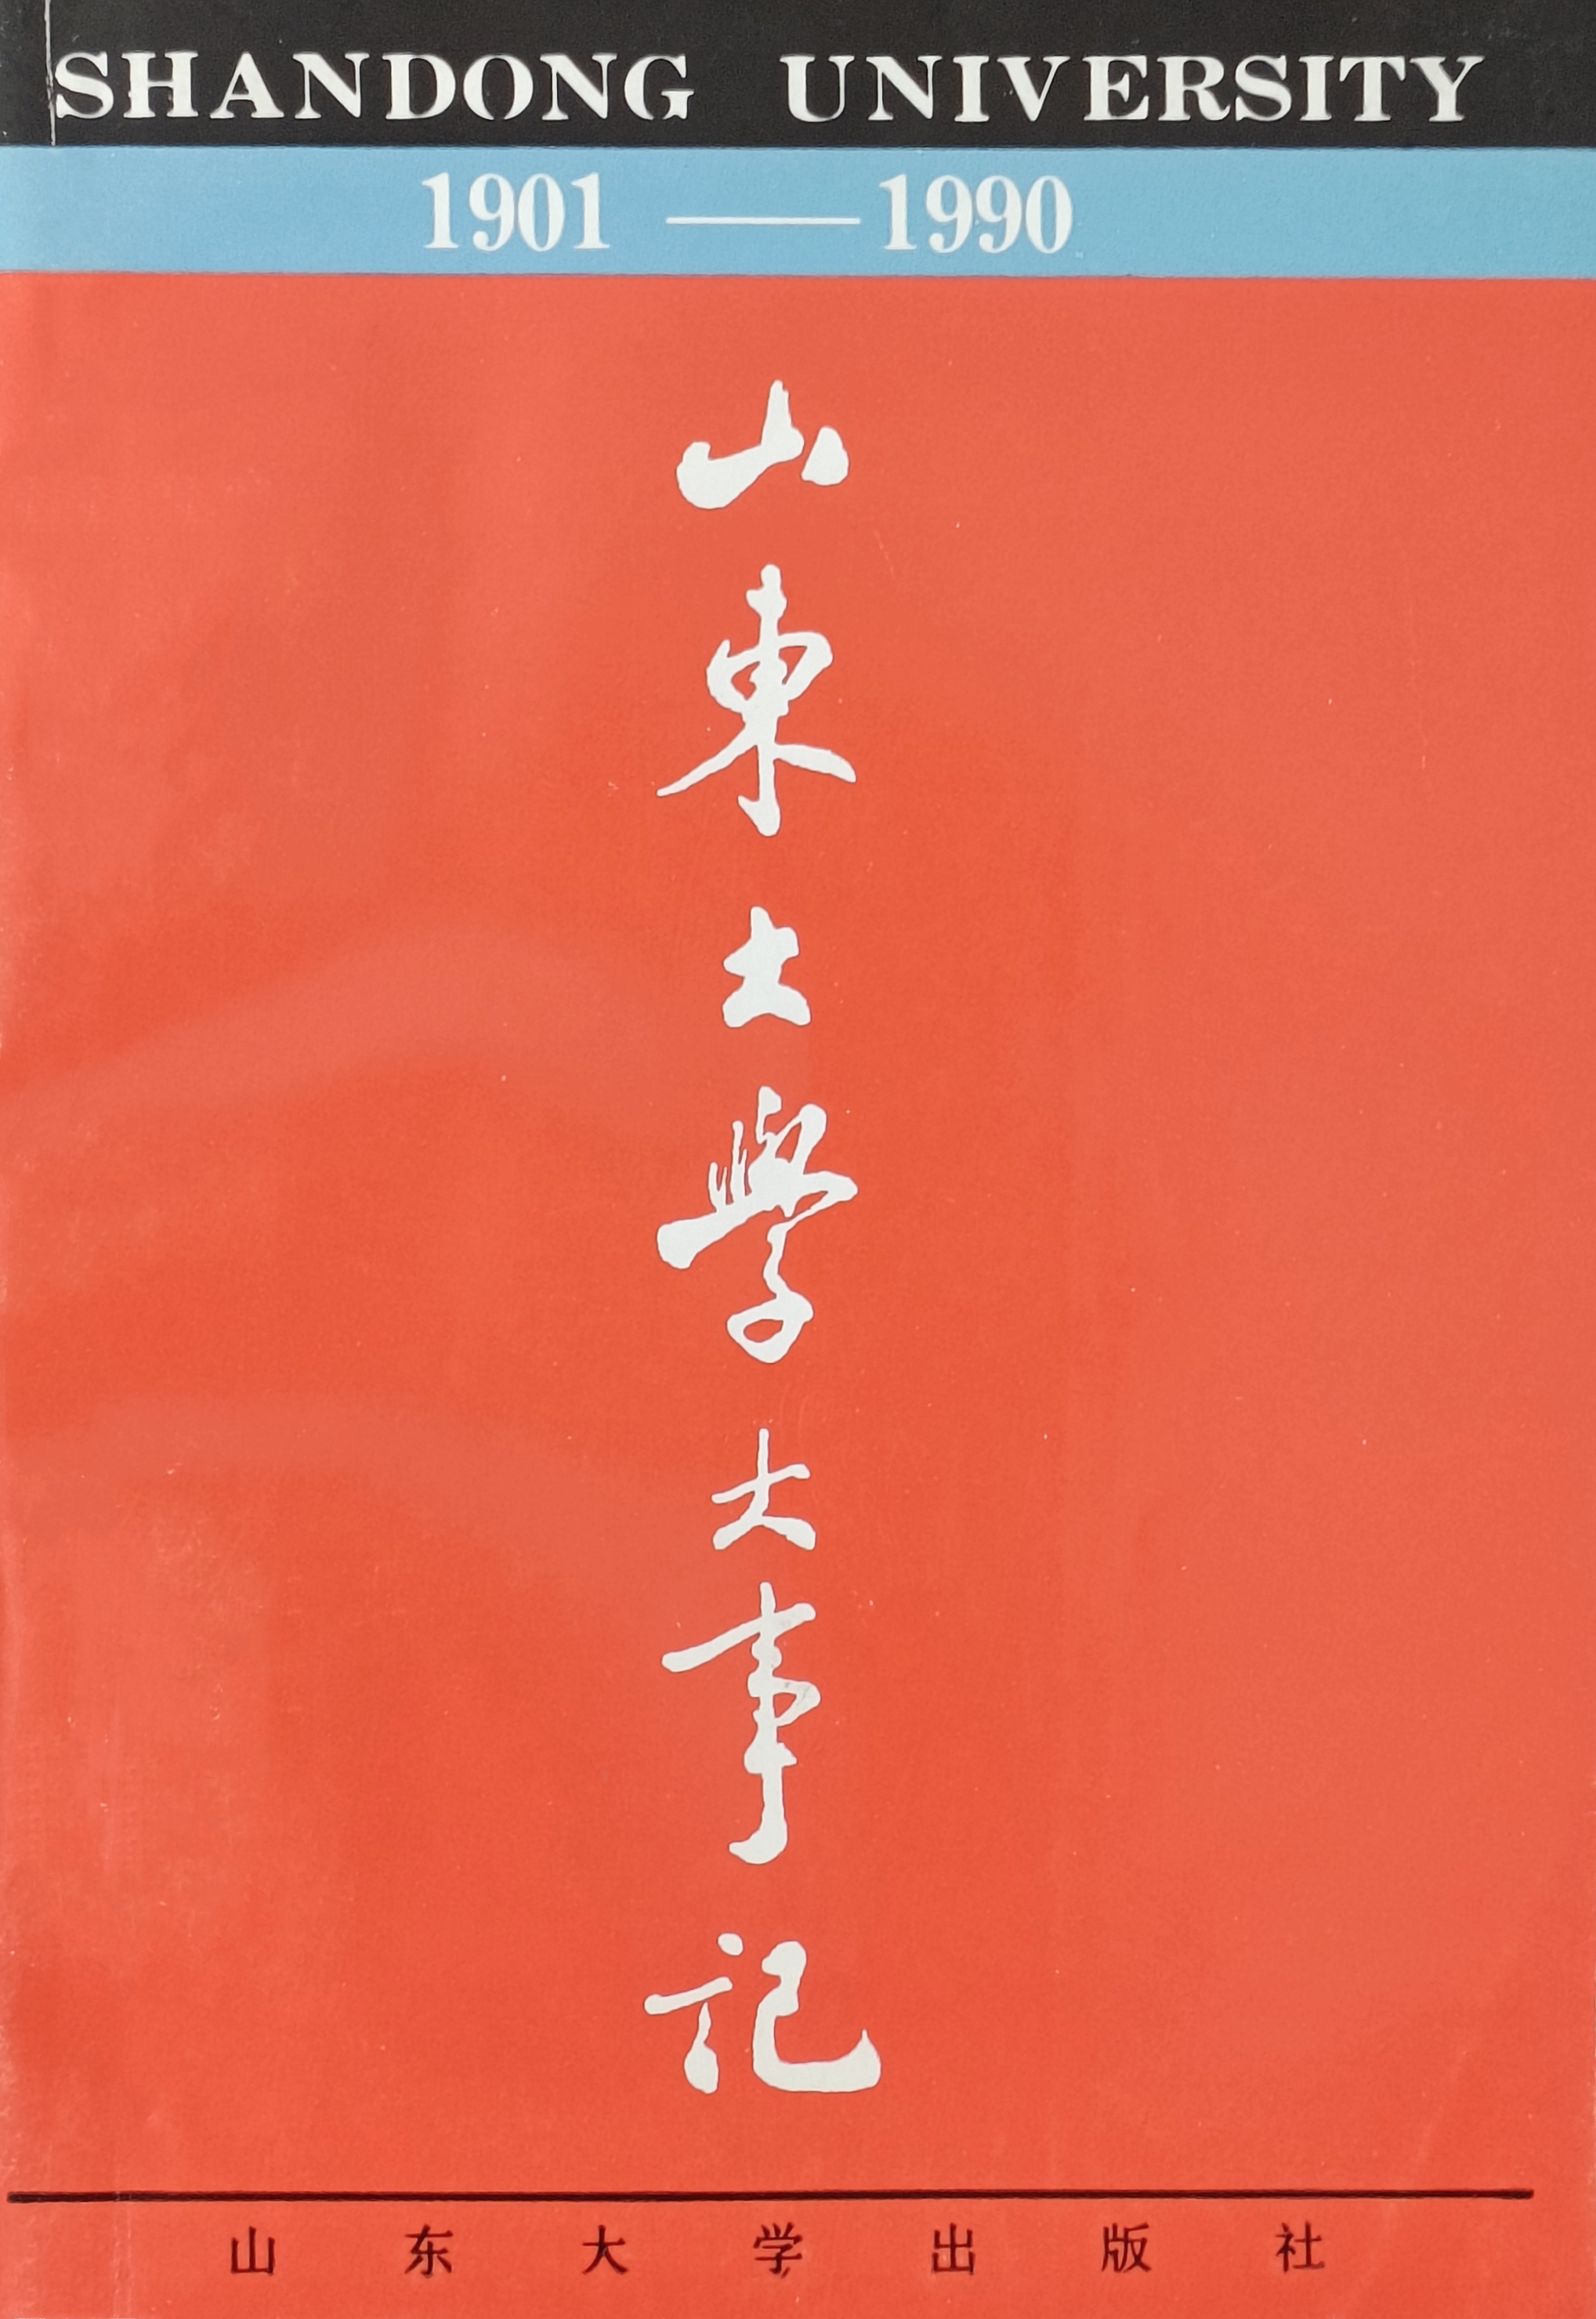 SHANDONG UNIVERSITY
1901——1990
山東大學大事記
山东大学出版社